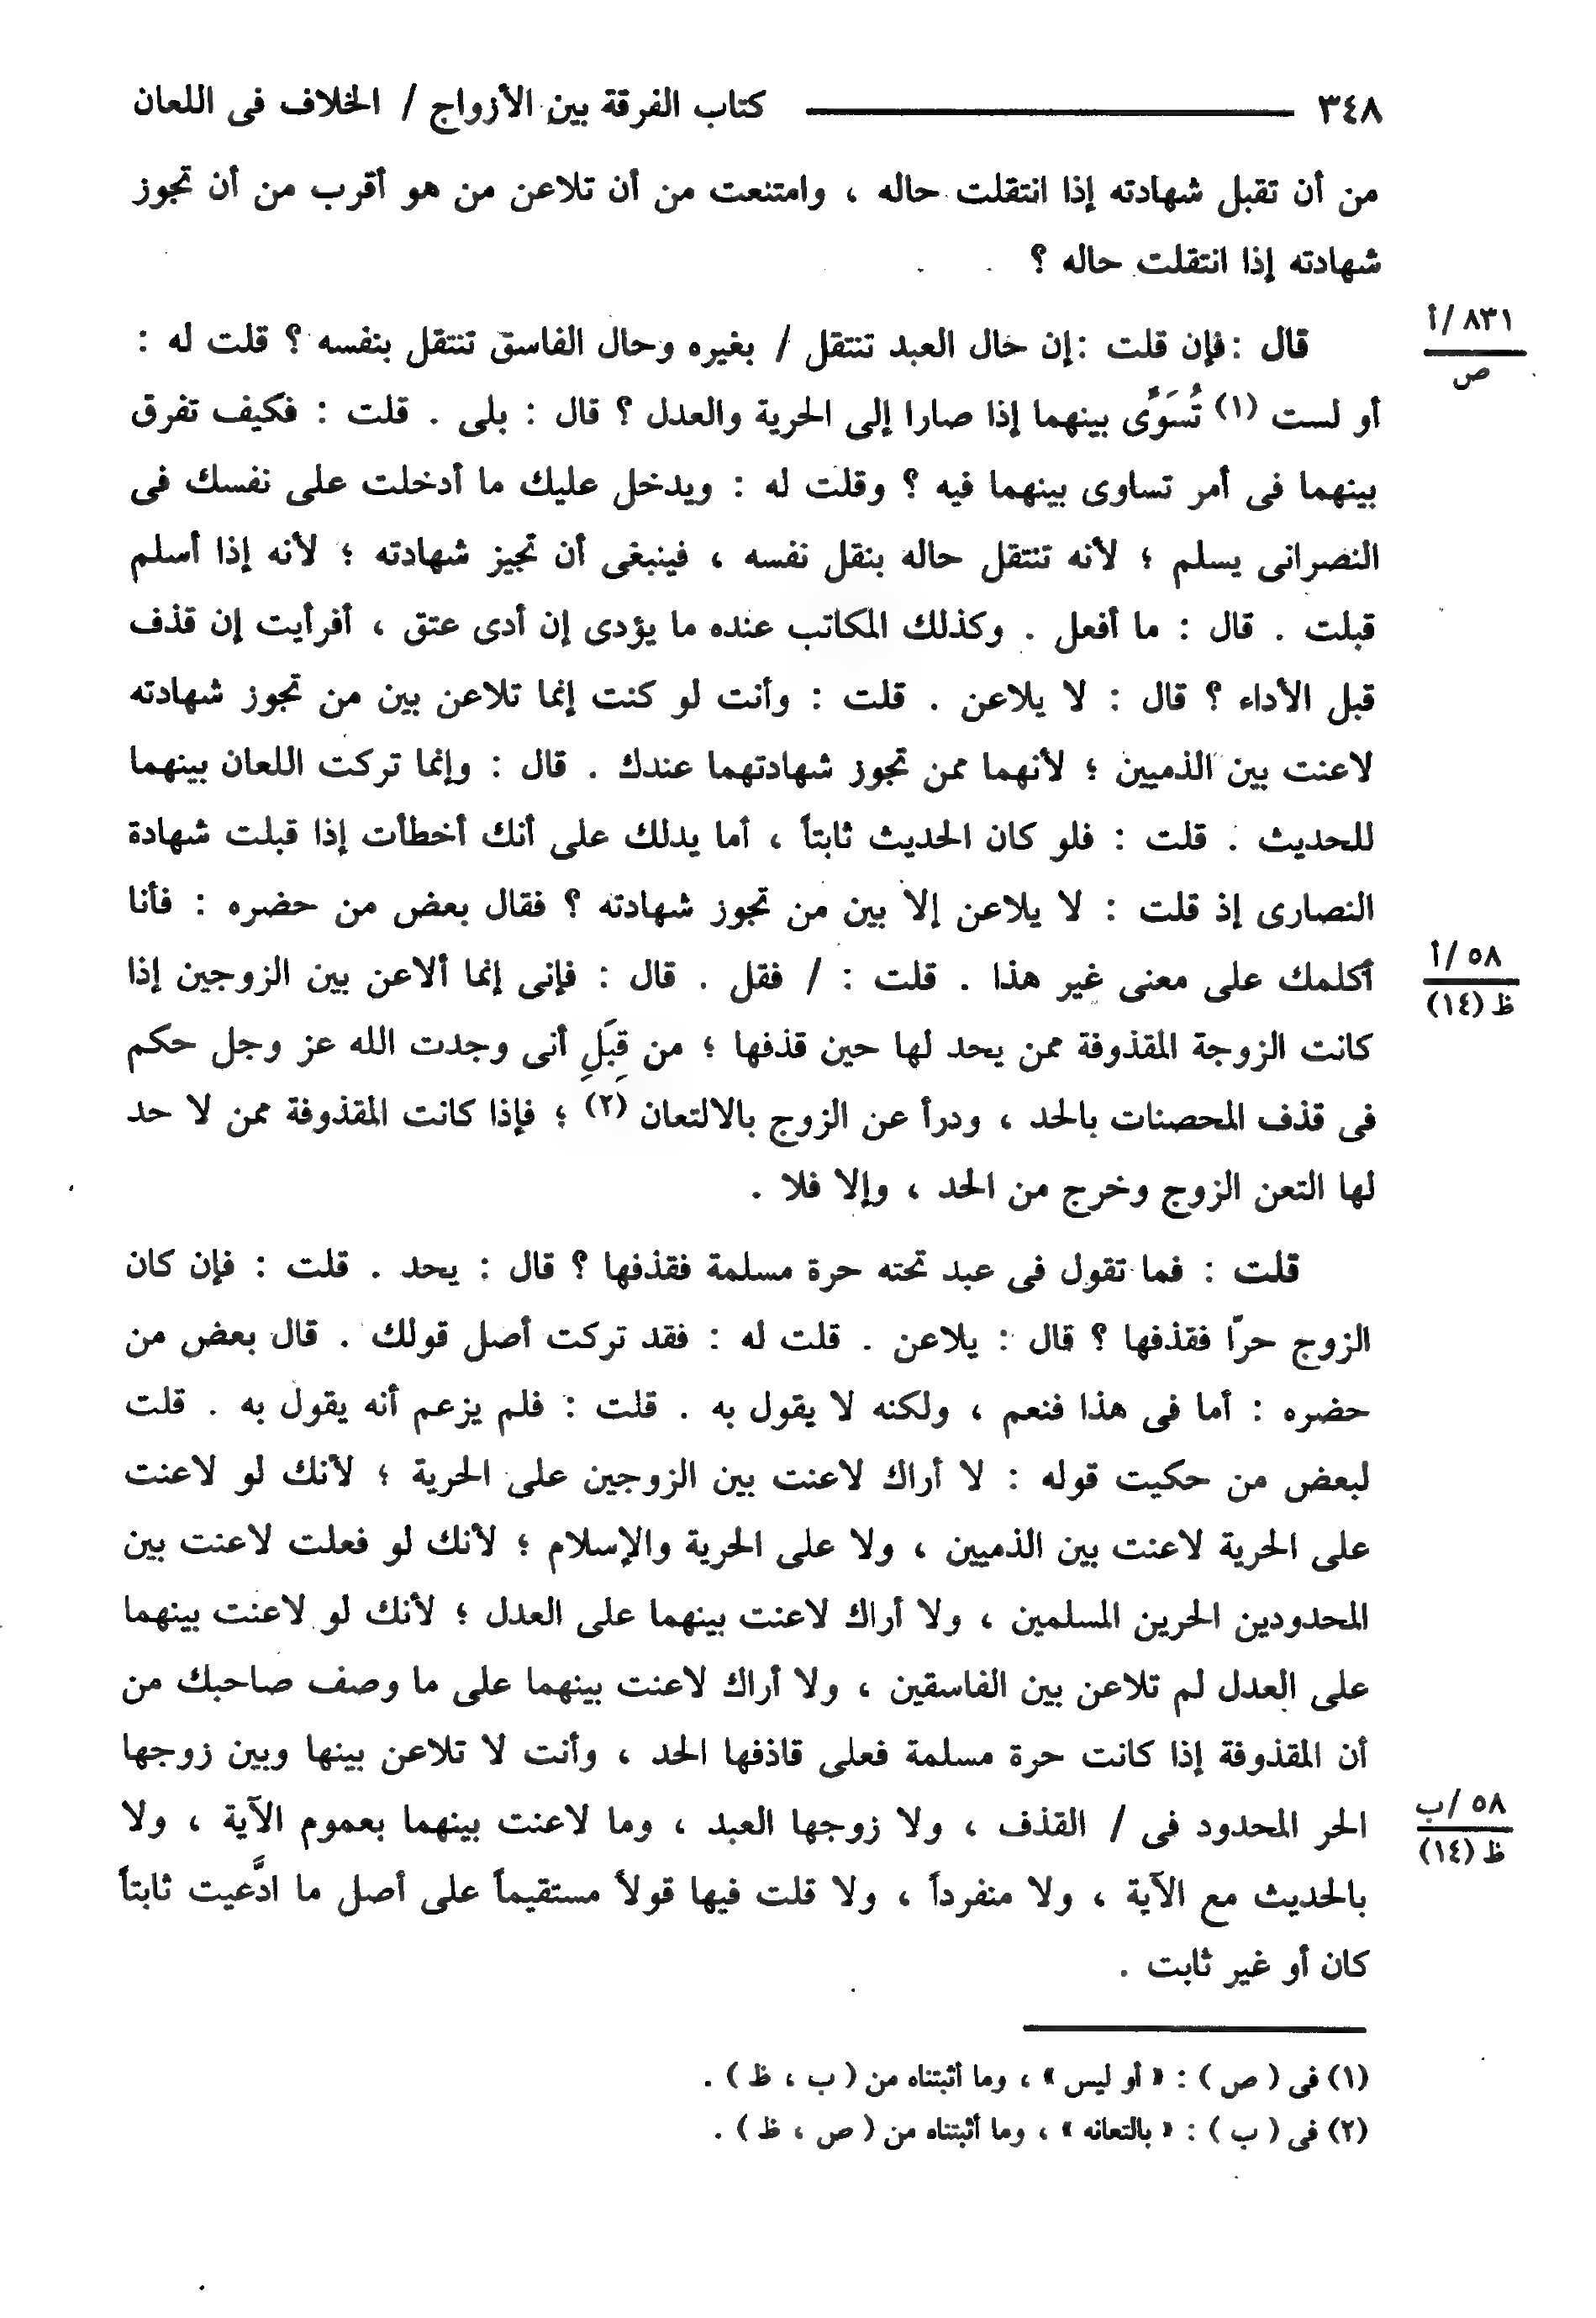 ٣٤٨ كتاب الفرقة بين الأزواج / الخلاف فى اللعان
من أن تقبل شهادته إذا انتقلت حاله ، وامتنعت من أن تلاعن من هو أقرب من أن تجوز
شهادته إذا انتقلت حاله ؟
قال : فإن قلت : إن حال العبد تنتقل / بغيره وحال الفاسق تنتقل بنفسه ؟ قلت له :
٨٣١ /أ
ص
أو لست (١) تُسَوِّى بينهما إذا صارا إلى الحرية والعدل ؟ قال : بلى . قلت : فكيف تفرق
بينهما فى أمر تساوى بينهما فيه ؟ وقلت له : ويدخل عليك ما أدخلت على نفسك فى
النصرانى يسلم ؛ لأنه تنتقل حاله بنقل نفسه ، فينبغى أن تجيز شهادته ؛ لأنه إذا أسلم
قبلت . قال : ما أفعل . وكذلك المكاتب عنده ما يؤدى إن أدى عتق ، أفرأيت إن قذف
قبل الأداء ؟ قال : لا يلاعن . قلت : وأنت لو كنت إنما تلاعن بين من تجوز شهادته
لاعنت بين الذميين ؛ لأنهما ممن تجوز شهادتهما عندك . قال : وإنما تركت اللعان بينهما
للحديث . قلت : فلو كان الحديث ثابتاً ، أما يدلك على أنك أخطأت إذا قبلت شهادة
النصارى إذ قلت : لا يلاعن إلا بين من تجوز شهادته ؟ فقال بعض من حضره : فأنا
أكلمك على معنى غير هذا . قلت : / فقل . قال : فإنى إنما ألاعن بين الزوجين إذا
٥٨ /أ
ظ (١٤)
كانت الزوجة المقذوفة ممن يحد لها حين قذفها ؛ من قِبَلِ أنى وجدت الله عز وجل حكم
فى قذف المحصنات بالحد ، ودرأ عن الزوج بالالتعان (٢) ؛ فإذا كانت المقذوفة ممن لا حد
لها التعن الزوج وخرج من الحد ، وإلا فلا .
قلت : فما تقول فى عبد تحته حرة مسلمة فقذفها ؟ قال : يحد . قلت : فإن كان
الزوج حرّا فقذفها ؟ قال : يلاعن . قلت له : فقد تركت أصل قولك . قال بعض من
حضره : أما فى هذا فنعم ، ولكنه لا يقول به . قلت : فلم يزعم أنه يقول به . قلت
لبعض من حكيت قوله : لا أراك لاعنت بين الزوجين على الحرية ؛ لأنك لو لاعنت
على الحرية لاعنت بين الذميين ، ولا على الحرية والإسلام ؛ لأنك لو فعلت لاعنت بين
المحدودين الحرين المسلمين ، ولا أراك لاعنت بينهما على العدل ؛ لأنك لو لاعنت بينهما
على العدل لم تلاعن بين الفاسقين ، ولا أراك لاعنت بينهما على ما وصف صاحبك من
أن المقذوفة إذا كانت حرة مسلمة فعلى قاذفها الحد ، وأنت لا تلاعن بينها وبين زوجها
الحر المحدود فى / القذف ، ولا زوجها العبد ، وما لاعنت بينهما بعموم الآية ، ولا
٥٨ /ب
ظ (١٤)
بالحديث مع الآية ، ولا منفرداً ، ولا قلت فيها قولاً مستقيماً على أصل ما ادَّعيت ثابتاً
كان أو غير ثابت .
(١) فى ( ص ) : « أو ليس » ، وما أثبتناه من ( ب ، ظ ) .
(٢) فى ( ب ) : « بالتعانه » ، وما أثبتناه من ( ص ، ظ ) .